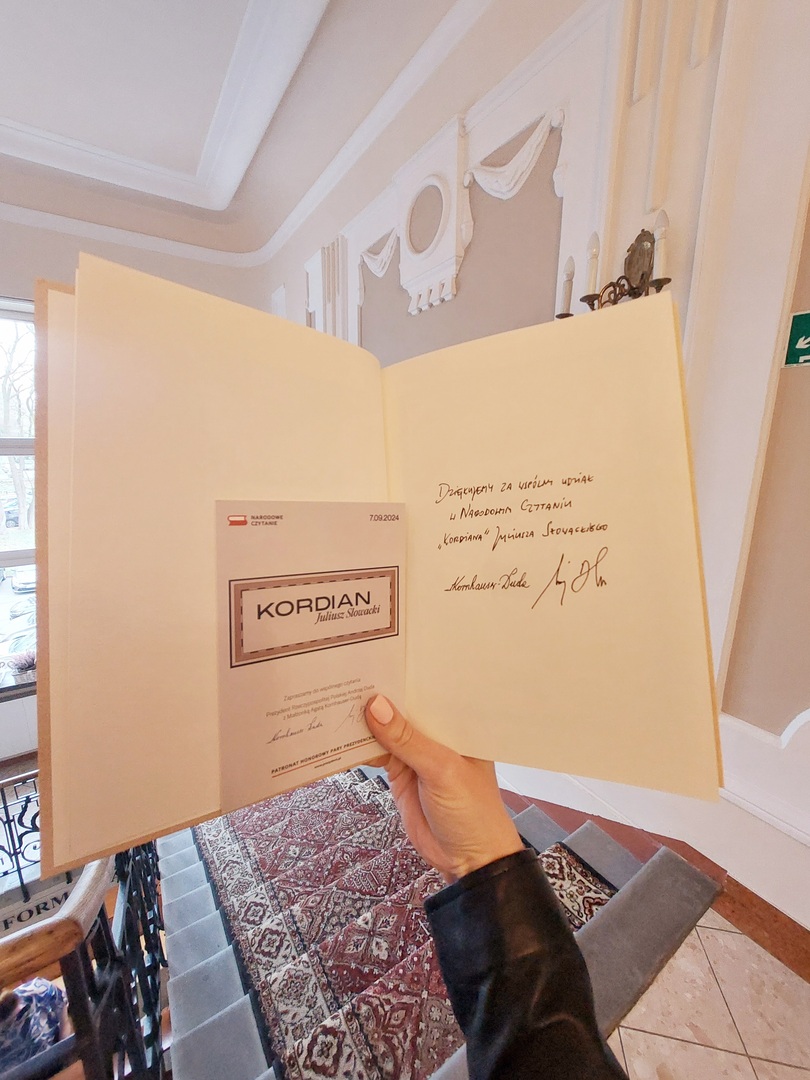 NARODOWE
CZYTANIE
7.09.2024
KORDIAN
Juliusz Słowacki
Zapraszamy do wspólnego czytania
Prezydent Rzeczypospolitej Polskiej Andrzej Duda
z Małżonką Agatą Kornhauser-Dudą
Kornhauser-Duda
PATRONAT HONOROWY PARY PREZYDENCKIEJ
Dziękujemy za wspólny udział
w Narodowym Czytaniu
„Kordiana" Juliusza Słowackiego
Kornhauser-Duda
FORM